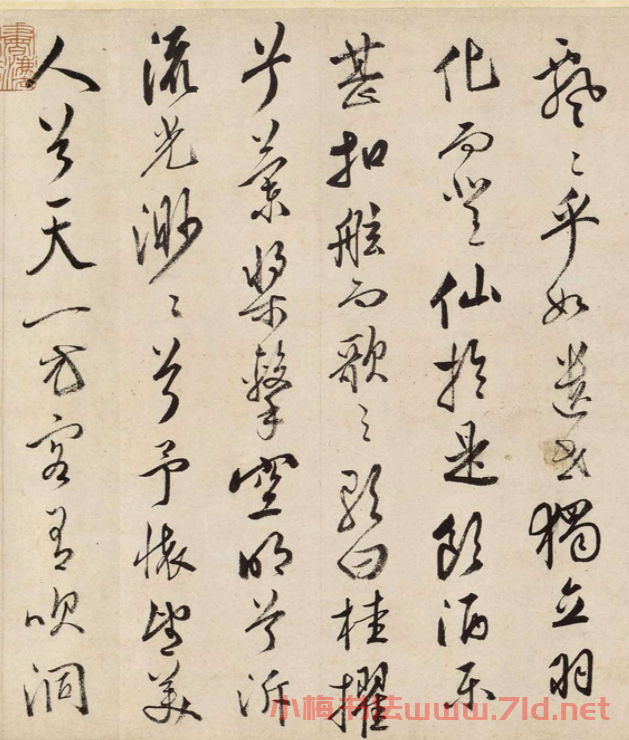 飄〻乎如遺世獨立羽
化而登仙於是飲酒樂
甚扣舷而歌之歌曰桂擢
兮蘭槳擊空明兮泝
流光渺〻兮予懷望美
人兮天一方客有吹洞
小梅书法www.7ld.net